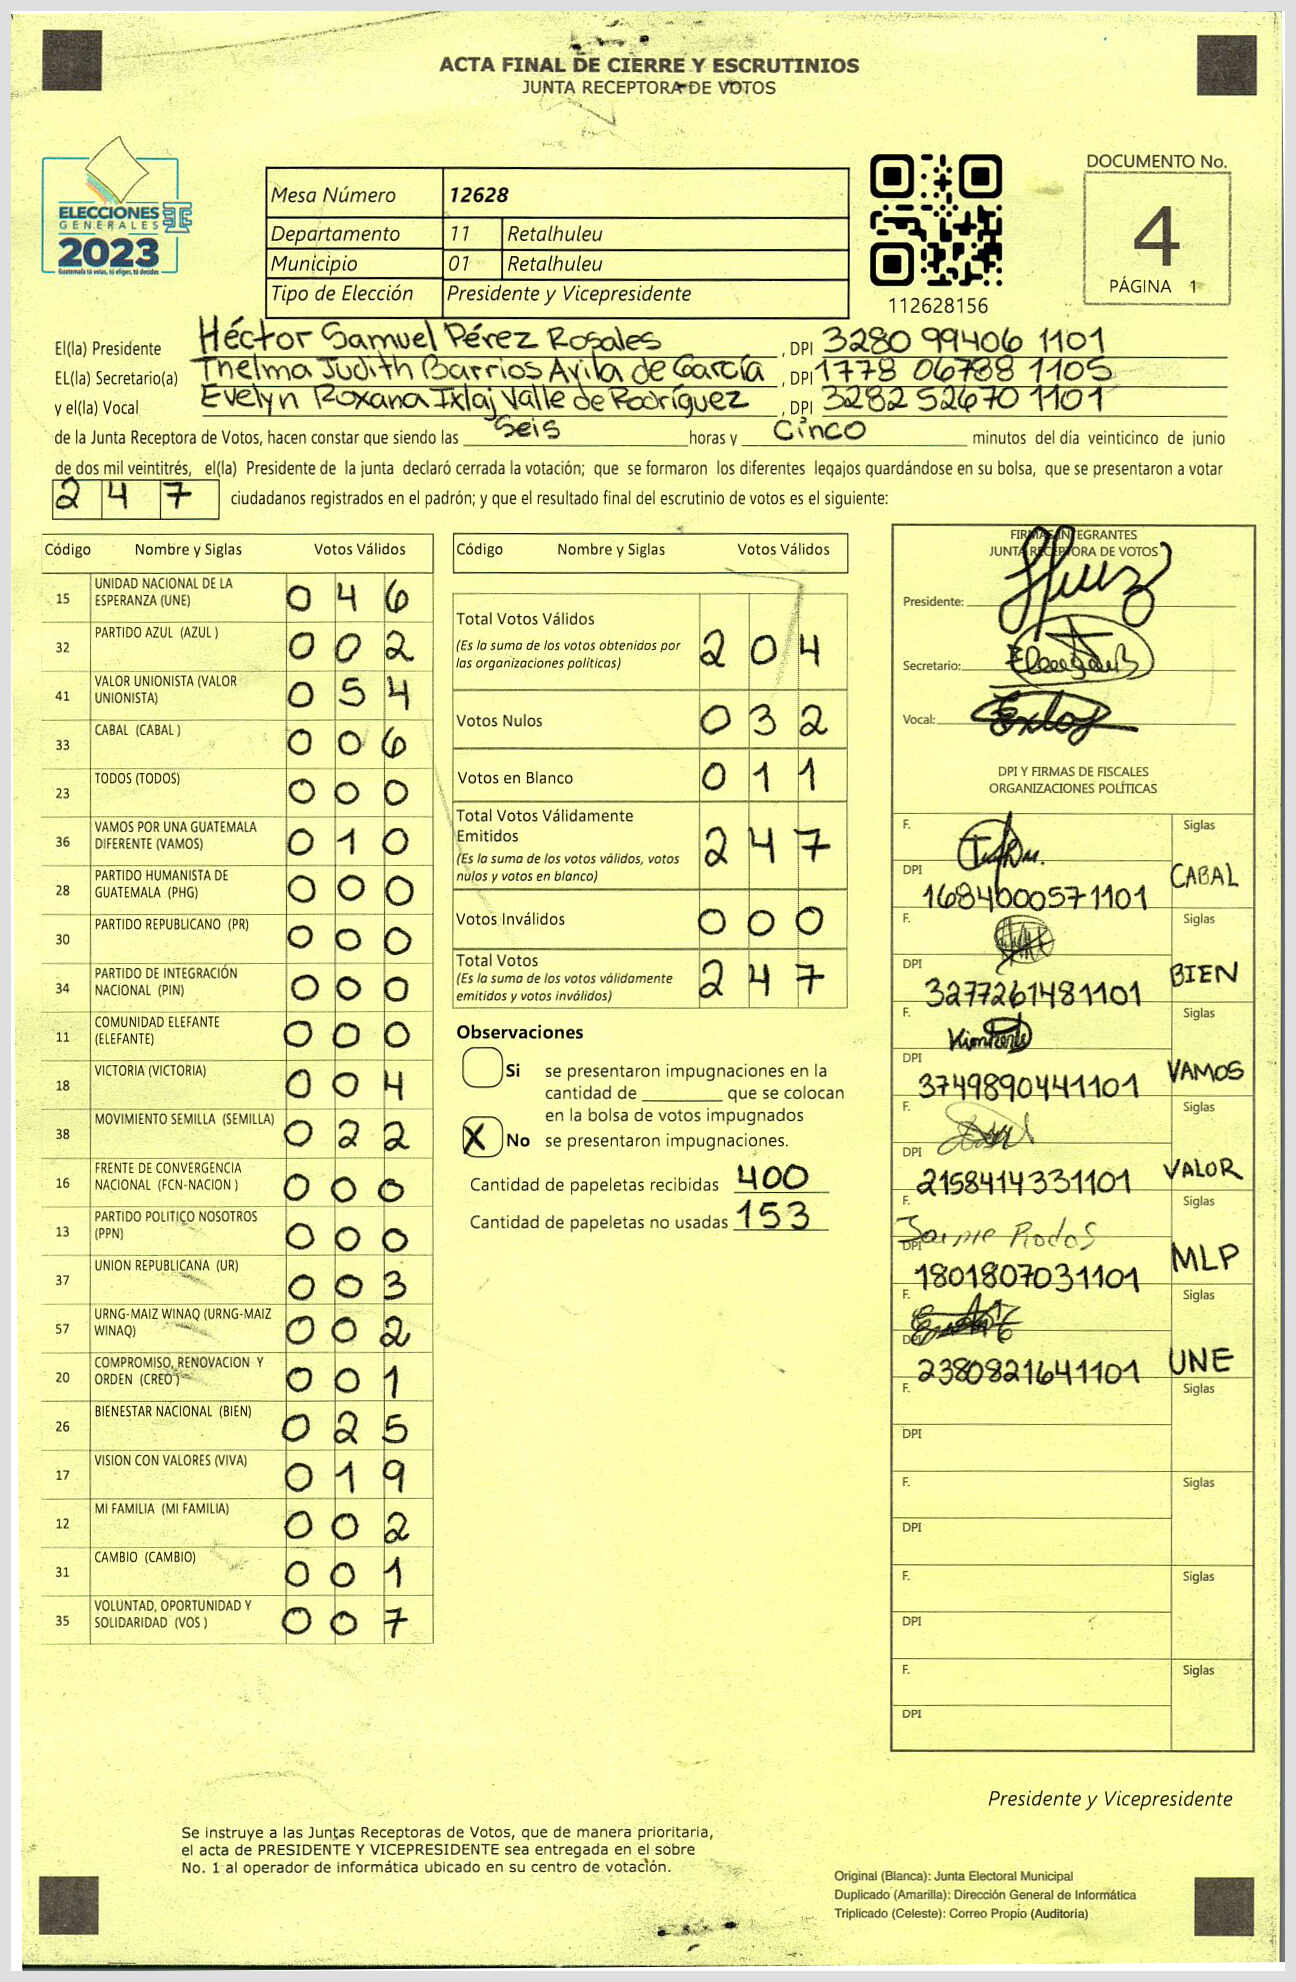 ACTA FINAL DE CIERRE Y ESCRUTINIOS
JUNTA RECEPTORA DE VOTOS
ELECCIONES
GENERALES
2023
Guatemala tú votas, tú eliges, tú decides
Mesa Número 12628
Departamento 11 Retalhuleu
Municipio 01 Retalhuleu
Tipo de Elección Presidente y Vicepresidente
112628156
DOCUMENTO No.
4
PÁGINA 1
El(la) Presidente Héctor Samuel Pérez Rosales , DPI 3280 99406 1101
EL(la) Secretario(a) Thelma Judith Barrios Avila de García , DPI 1778 06788 1105
y el(la) Vocal Evelyn Roxana Ixlaj Valle de Rodríguez , DPI 3282 52670 1101
de la Junta Receptora de Votos, hacen constar que siendo las Seis horas y Cinco minutos del día veinticinco de junio
de dos mil veintitrés, el(la) Presidente de la junta declaró cerrada la votación; que se formaron los diferentes legajos quardándose en su bolsa, que se presentaron a votar
2 4 7 ciudadanos registrados en el padrón; y que el resultado final del escrutinio de votos es el siguiente:
Código Nombre y Siglas Votos Válidos
15 UNIDAD NACIONAL DE LA ESPERANZA (UNE) 0 4 6
32 PARTIDO AZUL (AZUL ) 0 0 2
41 VALOR UNIONISTA (VALOR UNIONISTA) 0 5 4
33 CABAL (CABAL ) 0 0 6
23 TODOS (TODOS) 0 0 0
36 VAMOS POR UNA GUATEMALA DIFERENTE (VAMOS) 0 1 0
28 PARTIDO HUMANISTA DE GUATEMALA (PHG) 0 0 0
30 PARTIDO REPUBLICANO (PR) 0 0 0
34 PARTIDO DE INTEGRACIÓN NACIONAL (PIN) 0 0 0
11 COMUNIDAD ELEFANTE (ELEFANTE) 0 0 0
18 VICTORIA (VICTORIA) 0 0 4
38 MOVIMIENTO SEMILLA (SEMILLA) 0 2 2
16 FRENTE DE CONVERGENCIA NACIONAL (FCN-NACION ) 0 0 0
13 PARTIDO POLITICO NOSOTROS (PPN) 0 0 0
37 UNION REPUBLICANA (UR) 0 0 3
57 URNG-MAIZ WINAQ (URNG-MAIZ WINAQ) 0 0 2
20 COMPROMISO, RENOVACION Y ORDEN (CREO ) 0 0 1
26 BIENESTAR NACIONAL (BIEN) 0 2 5
17 VISION CON VALORES (VIVA) 0 1 9
12 MI FAMILIA (MI FAMILIA) 0 0 2
31 CAMBIO (CAMBIO) 0 0 1
35 VOLUNTAD, OPORTUNIDAD Y SOLIDARIDAD (VOS ) 0 0 7
Código Nombre y Siglas Votos Válidos
Total Votos Válidos 2 0 4
(Es la suma de los votos obtenidos por
las organizaciones políticas)
Votos Nulos 0 3 2
Votos en Blanco 0 1 1
Total Votos Válidamente
Emitidos 2 4 7
(Es la suma de los votos válidos, votos
nulos y votos en blanco)
Votos Inválidos 0 0 0
Total Votos 2 4 7
(Es la suma de los votos válidamente
emitidos y votos inválidos)
Observaciones
Si se presentaron impugnaciones en la
cantidad de ________ que se colocan
en la bolsa de votos impugnados
X No se presentaron impugnaciones.
Cantidad de papeletas recibidas 400
Cantidad de papeletas no usadas 153
FIRMAS INTEGRANTES
JUNTA RECEPTORA DE VOTOS
Presidente:
Secretario:
Vocal:
DPI Y FIRMAS DE FISCALES
ORGANIZACIONES POLÍTICAS
F. Siglas
DPI 1684000571101 CABAL
F. Siglas
DPI 3277261481101 BIEN
F. Siglas
DPI 3749890441101 VAMOS
F. Siglas
DPI 2158414331101 VALOR
F. Jaime Rodos Siglas
DPI 1801807031101 MLP
F. Siglas
DPI 2380821641101 UNE
F. Siglas
DPI
F. Siglas
DPI
F. Siglas
DPI
F. Siglas
DPI
Presidente y Vicepresidente
Se instruye a las Juntas Receptoras de Votos, que de manera prioritaria,
el acta de PRESIDENTE Y VICEPRESIDENTE sea entregada en el sobre
No. 1 al operador de informática ubicado en su centro de votación.
Original (Blanca): Junta Electoral Municipal
Duplicado (Amarilla): Dirección General de Informática
Triplicado (Celeste): Correo Propio (Auditoria)